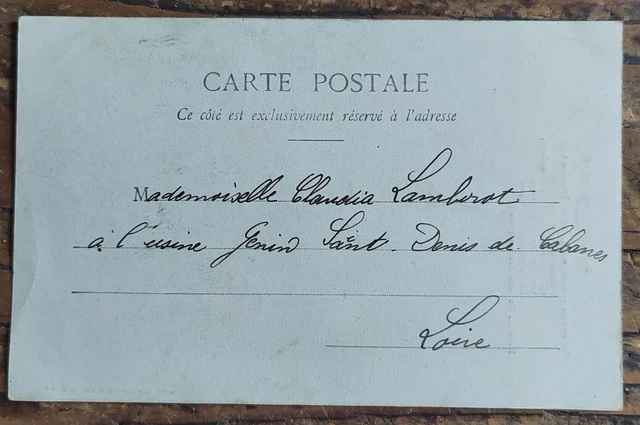 CARTE POSTALE
Ce côté est exclusivement réservé à l'adresse
Mademoiselle Claudia Lamberot
à l'usine Génin Saint-Denis de Cabanes
Loire